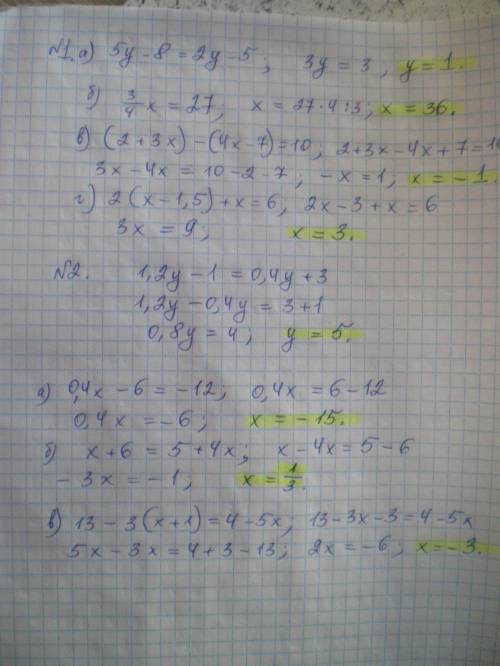 №1. а) 5y - 8 = 2y - 5; 3y = 3, y = 1.
б) 3/4 x = 27; x = 27·4:3; x = 36.
в) (2+3x) - (4x-7) = 10, 2+3x-4x+7=10
3x - 4x = 10 - 2 - 7; -x = 1, x = -1.
г) 2(x-1,5) + x = 6, 2x - 3 + x = 6
3x = 9, x = 3.
№2. 1,2y - 1 = 0,4y + 3
1,2y - 0,4y = 3+1
0,8y = 4; y = 5.
а) 0,4x - 6 = -12; 0,4x = 6 - 12
0,4x = -6; x = -15.
б) x + 6 = 5 + 4x; x - 4x = 5 - 6
-3x = -1, x = 1/3.
в) 13 - 3(x+1) = 4 - 5x; 13 - 3x - 3 = 4 - 5x
5x - 3x = 4 + 3 - 13; 2x = -6, x = -3.